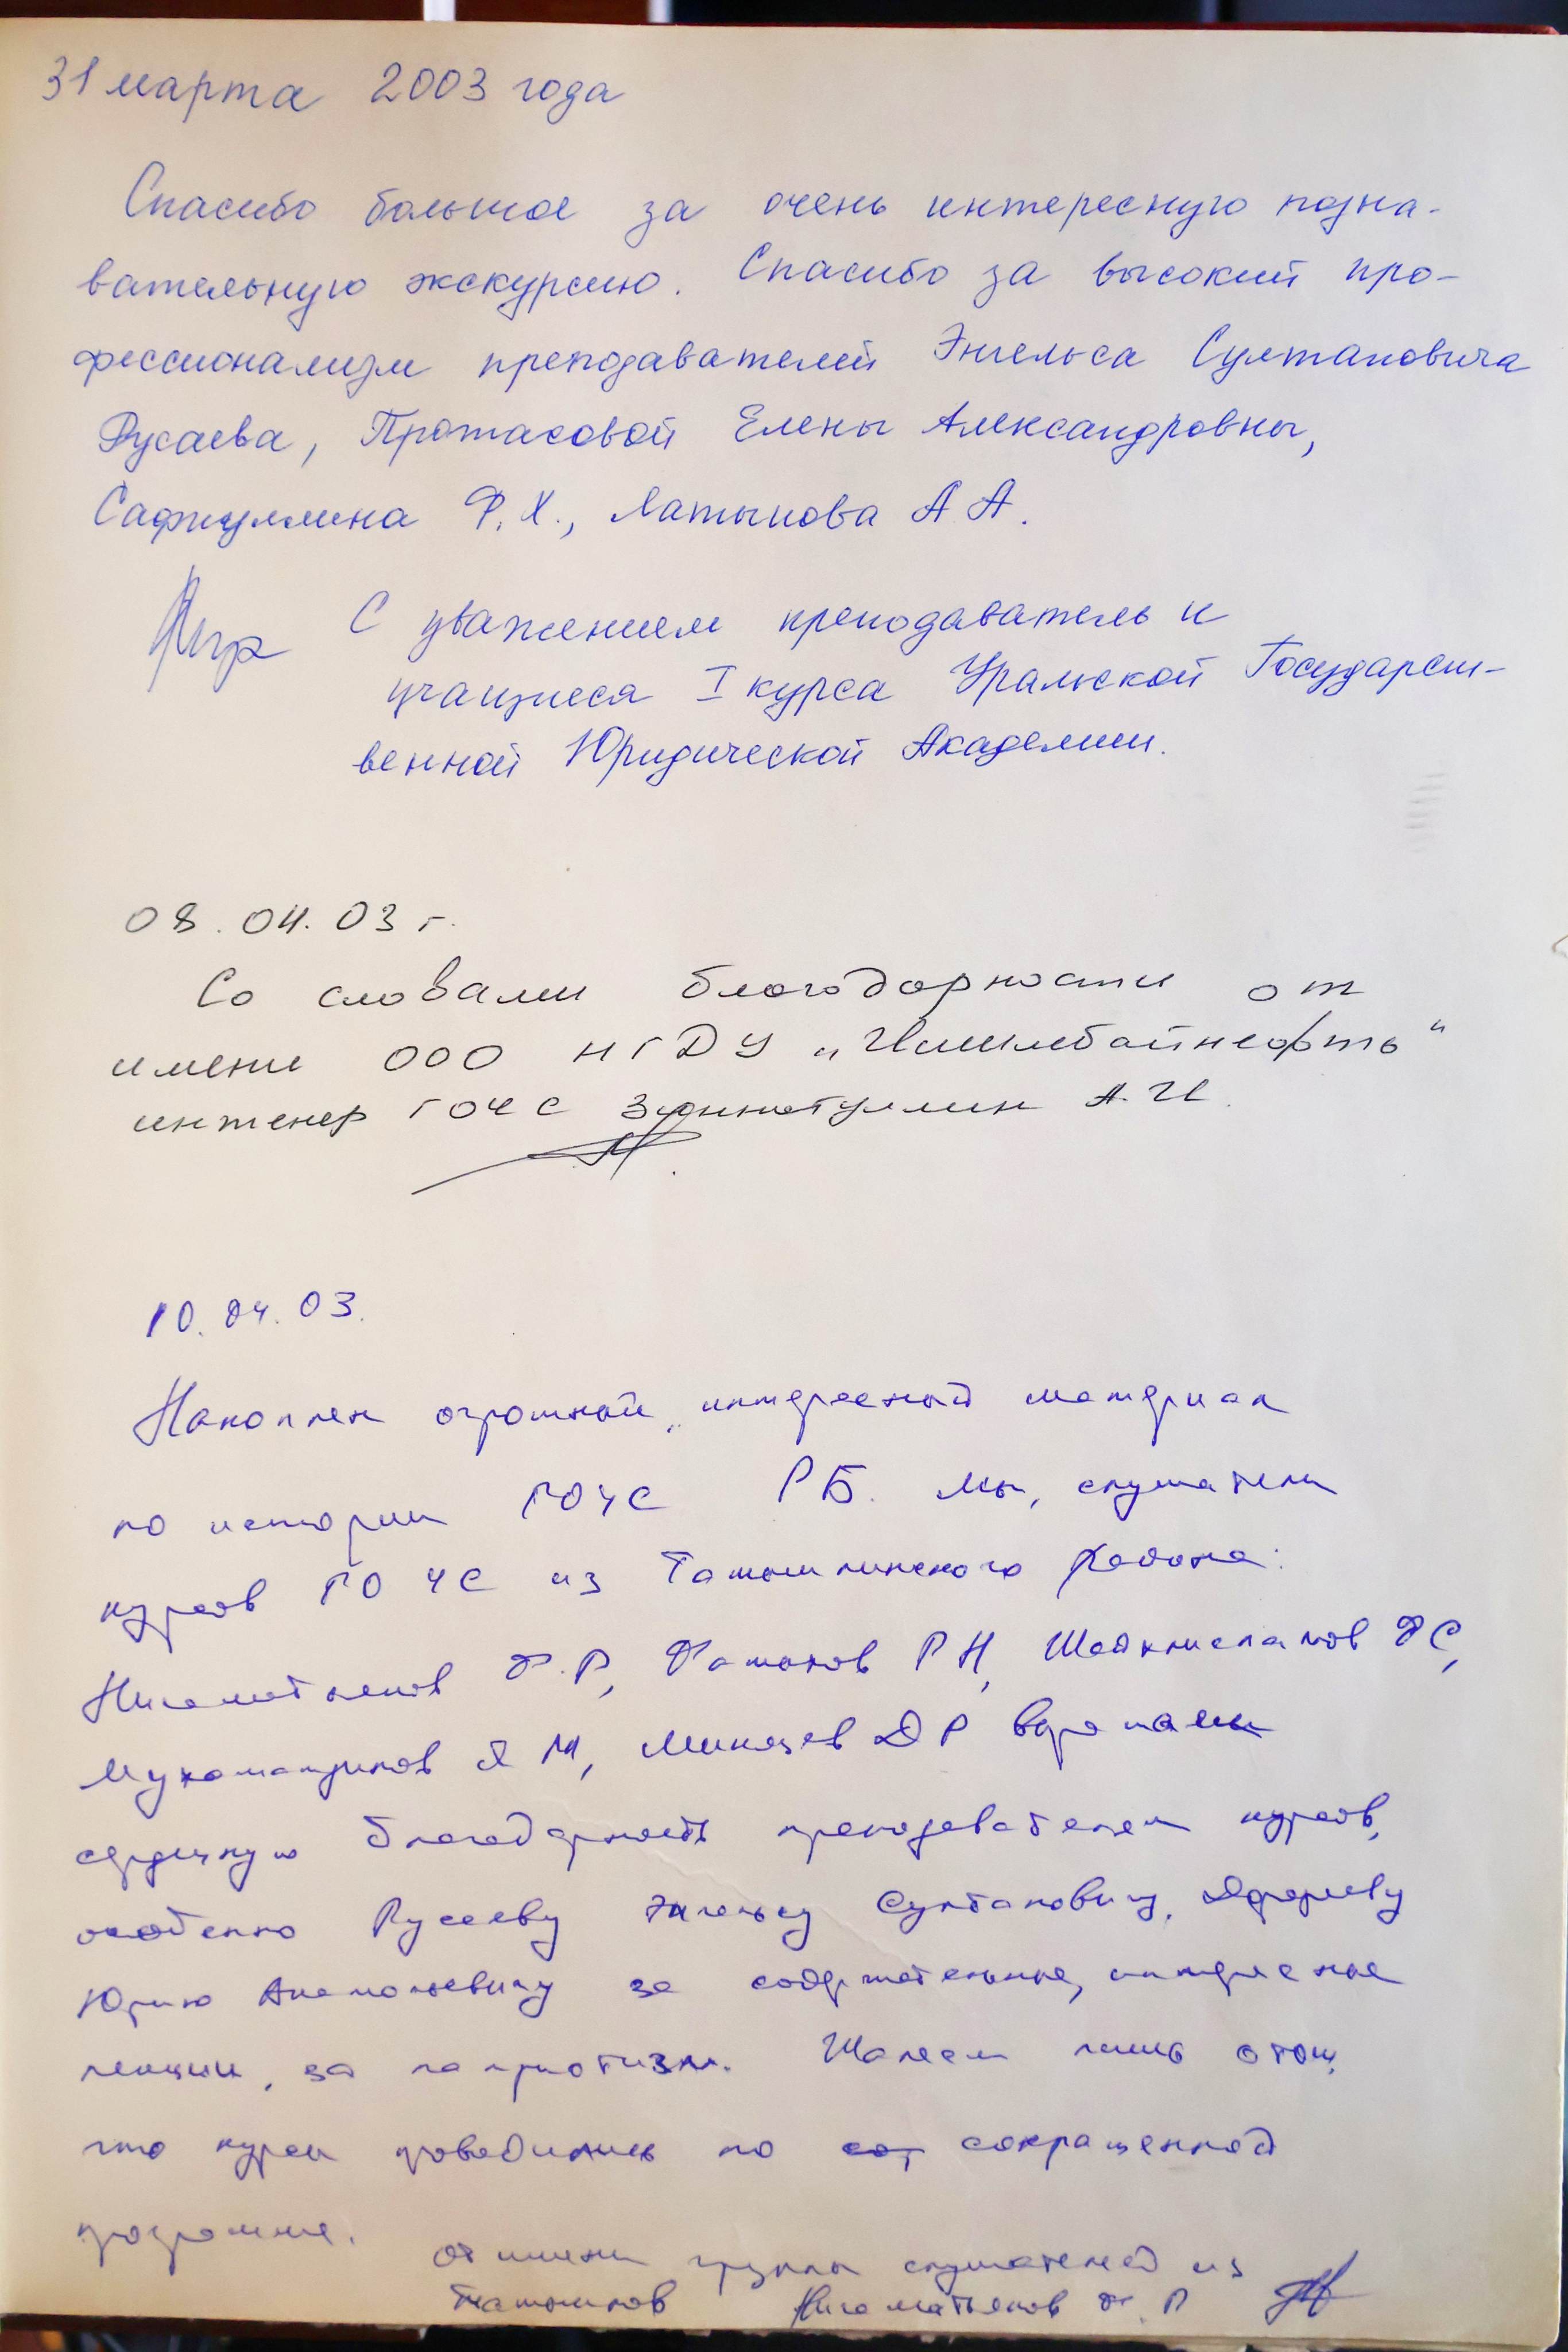 31 марта 2003 года
Спасибо большое за очень интересную позна-
вательную экскурсию. Спасибо за высокий про-
фессионализм преподавателей Энгельса Султановича
Русаева, Протасовой Елены Александровны,
Сафиуллина Ф.Х., Латыпова А.А.
С уважением преподаватель и
учащиеся I курса Уральской Государст-
венной Юридической Академии.
08.04.03 г.
Со словами благодарности от
имени ООО НГДУ „Ишимбайнефть"
инженер ГОЧС Зиннатуллин А.И.
10.04.03.
Накоплен огромный, интересный материал
по истории ГОЧС РБ. Мы, слушатели
курсов ГОЧС из Татышлинского района:
Нигаматьянов Ф.Р, Фатихов Р Н, Шайхисламов Ф С,
Мухаматдинов А М, Миниязев Д Р выражаем
сердечную благодарность преподавателям курсов,
особенно Русаеву Энгельсу Султановичу,
Юрию за содержательные, интересные
лекции, за патриотизм. Жалеем лишь о том,
что курсы проводились по сокращенной
программе.
От имени группы слушателей из
Нигаматьянов Ф.Р